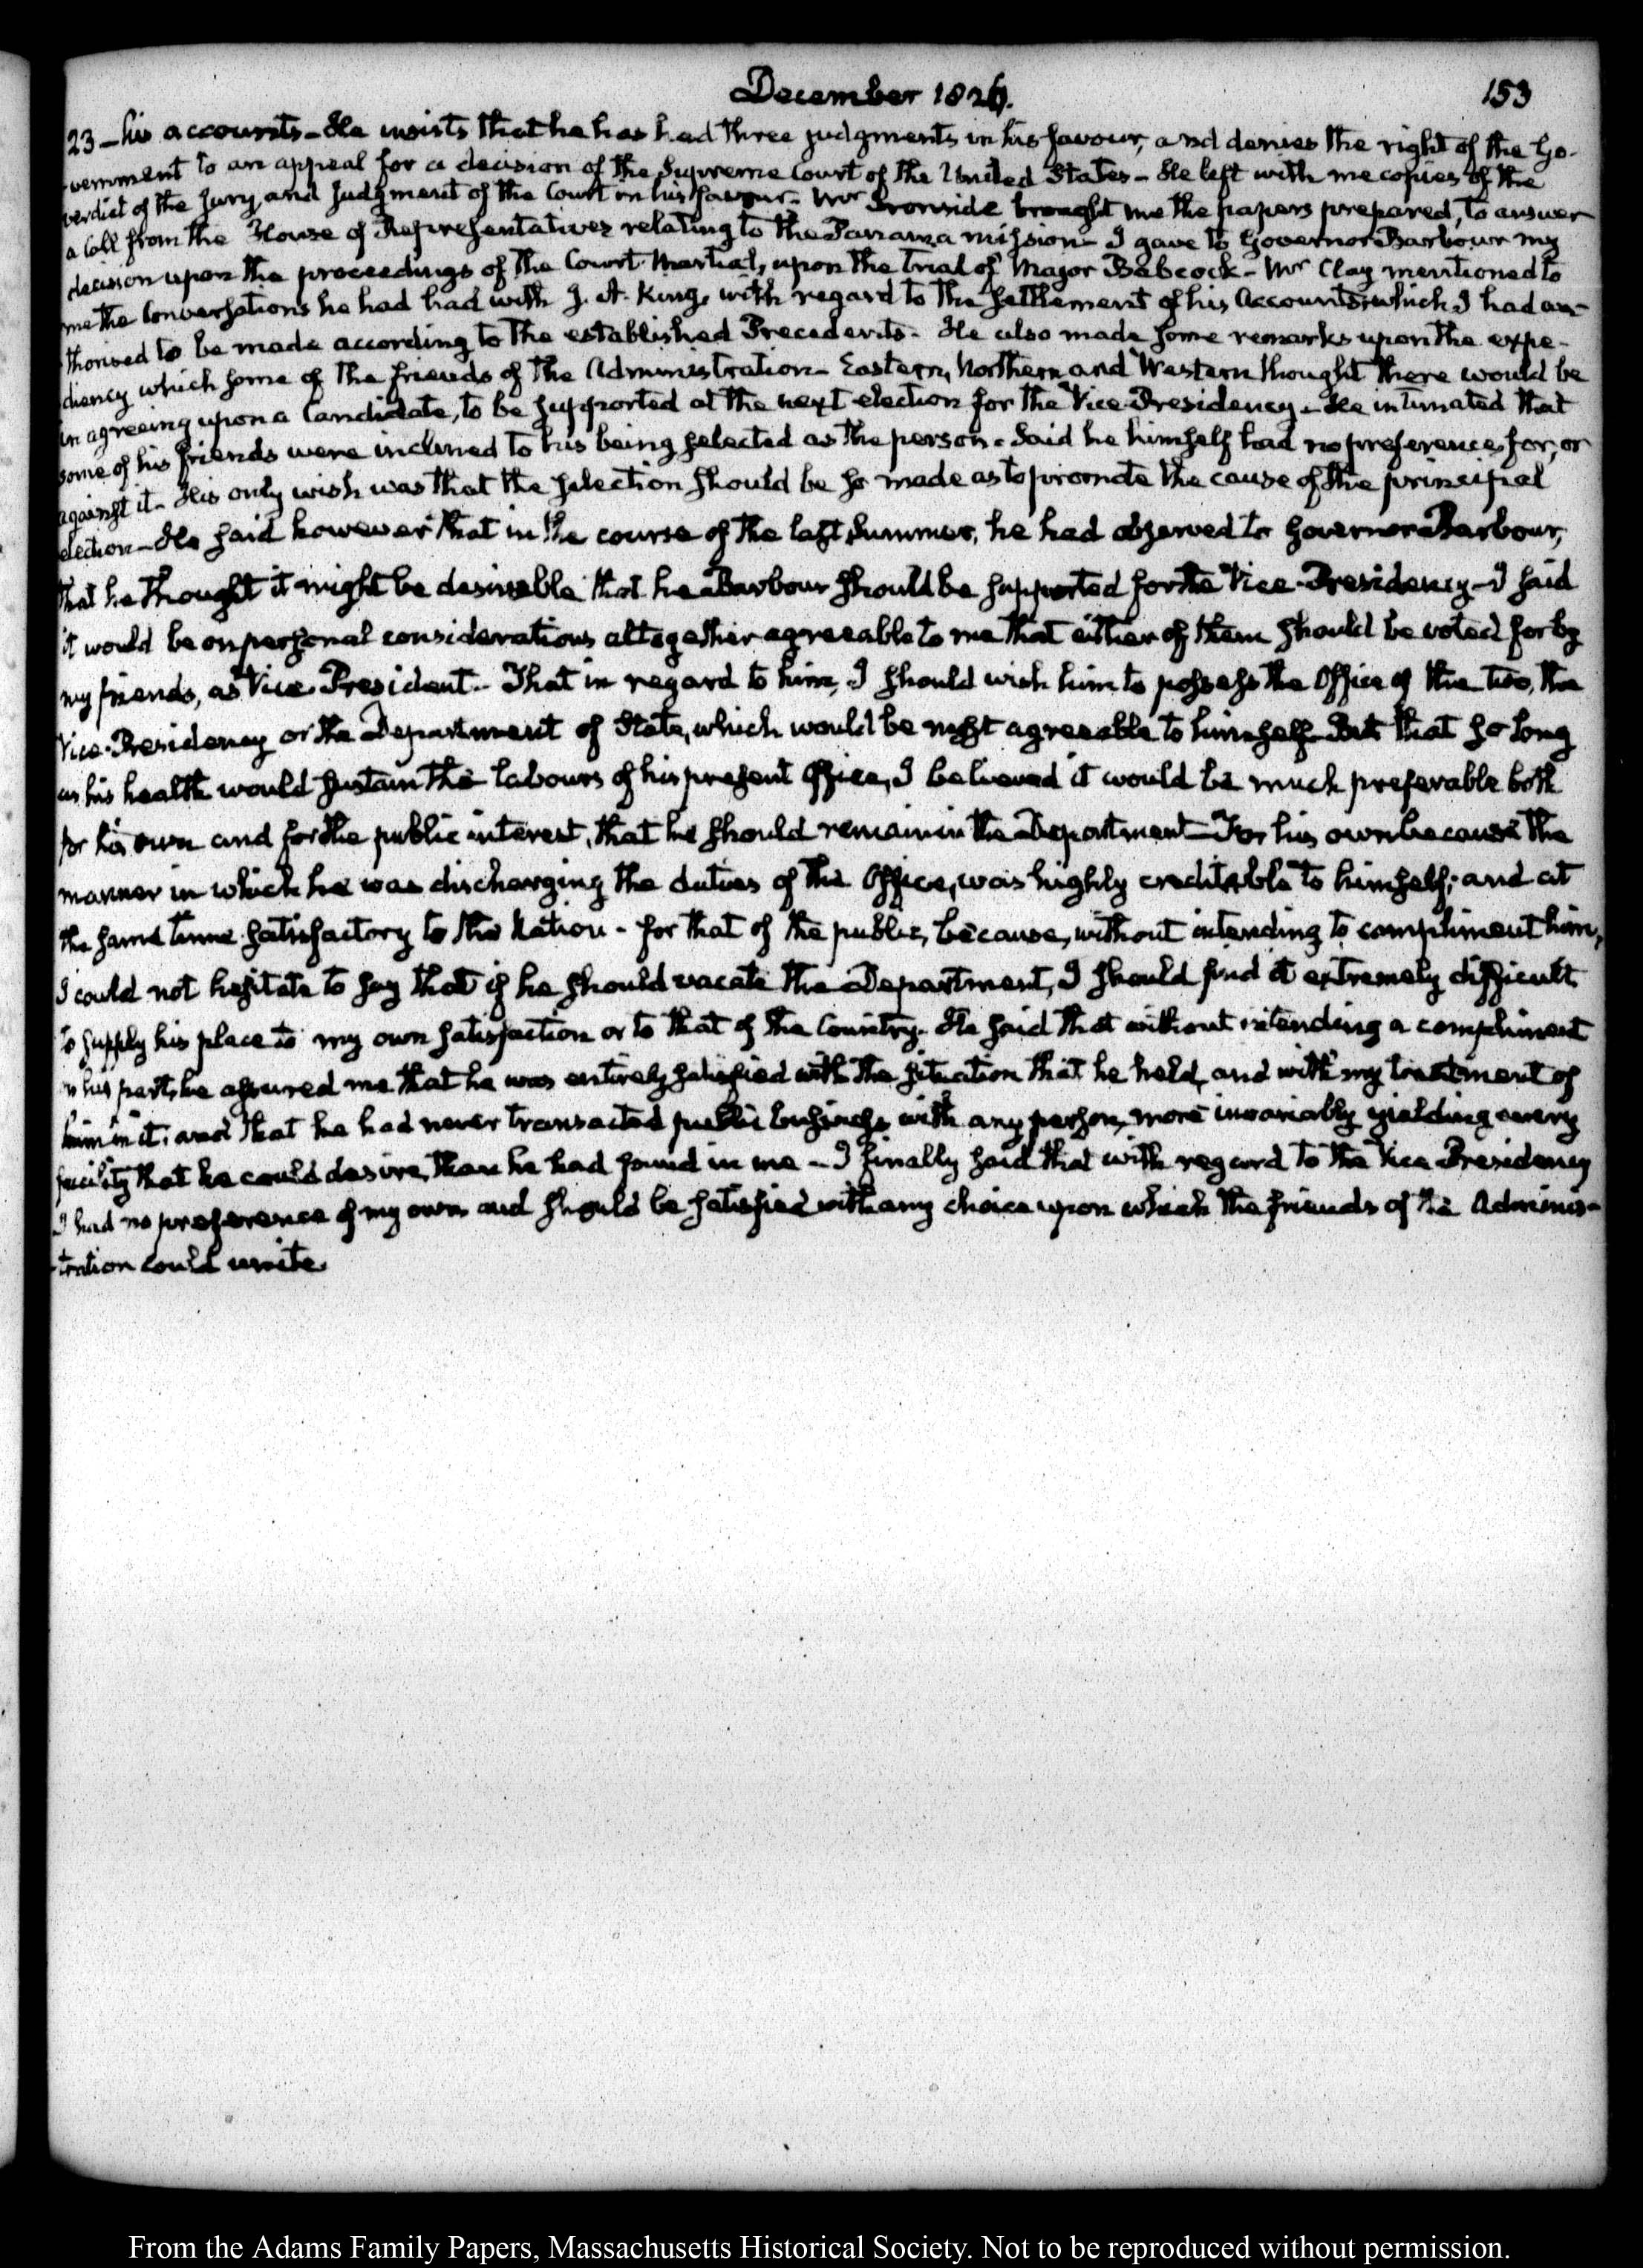 December 1826.
153
23 — his accounts – He insists that he has had three judgments in his favour, and denies the right of the Go-
-vernment to an appeal for a decision of the Supreme Court of the United States – He left with me copies of the
verdict of the Jury, and Judgment of the Court in his favour. Mr Ironside brought me the papers prepared, to answer
a Call from the House of Representatives relating to the Panama mission – I gave to Governor Barbour my
decision upon the proceedings of the Court-Martial, upon the trial of Major Babcock – Mr Clay mentioned to
me the Conversations he had had with J. A. King, with regard to the settlement of his Accounts which I had au-
thorised to be made according to the established Precedents. He also made some remarks upon the expe-
diency which some of the friends of the Administration – Eastern, Northern and Western thought there would be
in agreeing upon a Candidate, to be supported at the next election for the Vice-Presidency – He intimated that
some of his friends were inclined to his being selected as the person. Said he himself had no preference, for, or
against it. His only wish was that the selection should be so made as to promote the cause of the principal
election – He said however that in the course of the last Summer, he had observed to Governor Barbour,
that he thought it might be desirable that he Barbour should be supported for the Vice-Presidency – I said
it would be on personal considerations altogether agreeable to me that either of them should be voted for by
my friends, as Vice-President. That in regard to him, I should wish him to possess the Office of the two, the
Vice-Presidency or the Department of State, which would be most agreeable to himself – But that so long
as his health would sustain the labours of his present Office, I believed it would be much preferable both
for his own and for the public interest, that he should remain in the Department – For his own because the
manner in which he was discharging the duties of the Office, was highly creditable to himself; and at
the same time satisfactory to the Nation – for that of the public, because, without intending to compliment him,
I could not hesitate to say that if he should vacate the Department, I should find it extremely difficult
to supply his place to my own satisfaction or to that of the Country. He said that without intending a compliment
on his part, he assured me that he was entirely satisfied with the situation that he held, and with my treatment of
him in it; and that he had never transacted public business with any person, more invariably yielding every
facility that he could desire, than he had found in me – I finally said that with regard to the Vice Presidency
I had no preference of my own and should be satisfied with any choice upon which the friends of the Adminis-
-tration could unite.
From the Adams Family Papers, Massachusetts Historical Society. Not to be reproduced without permission.